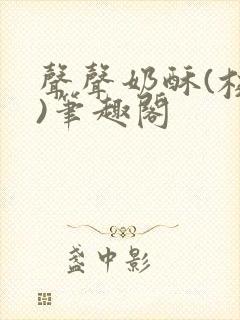 聲聲奶酥(校
)筆趣閣
盞中影